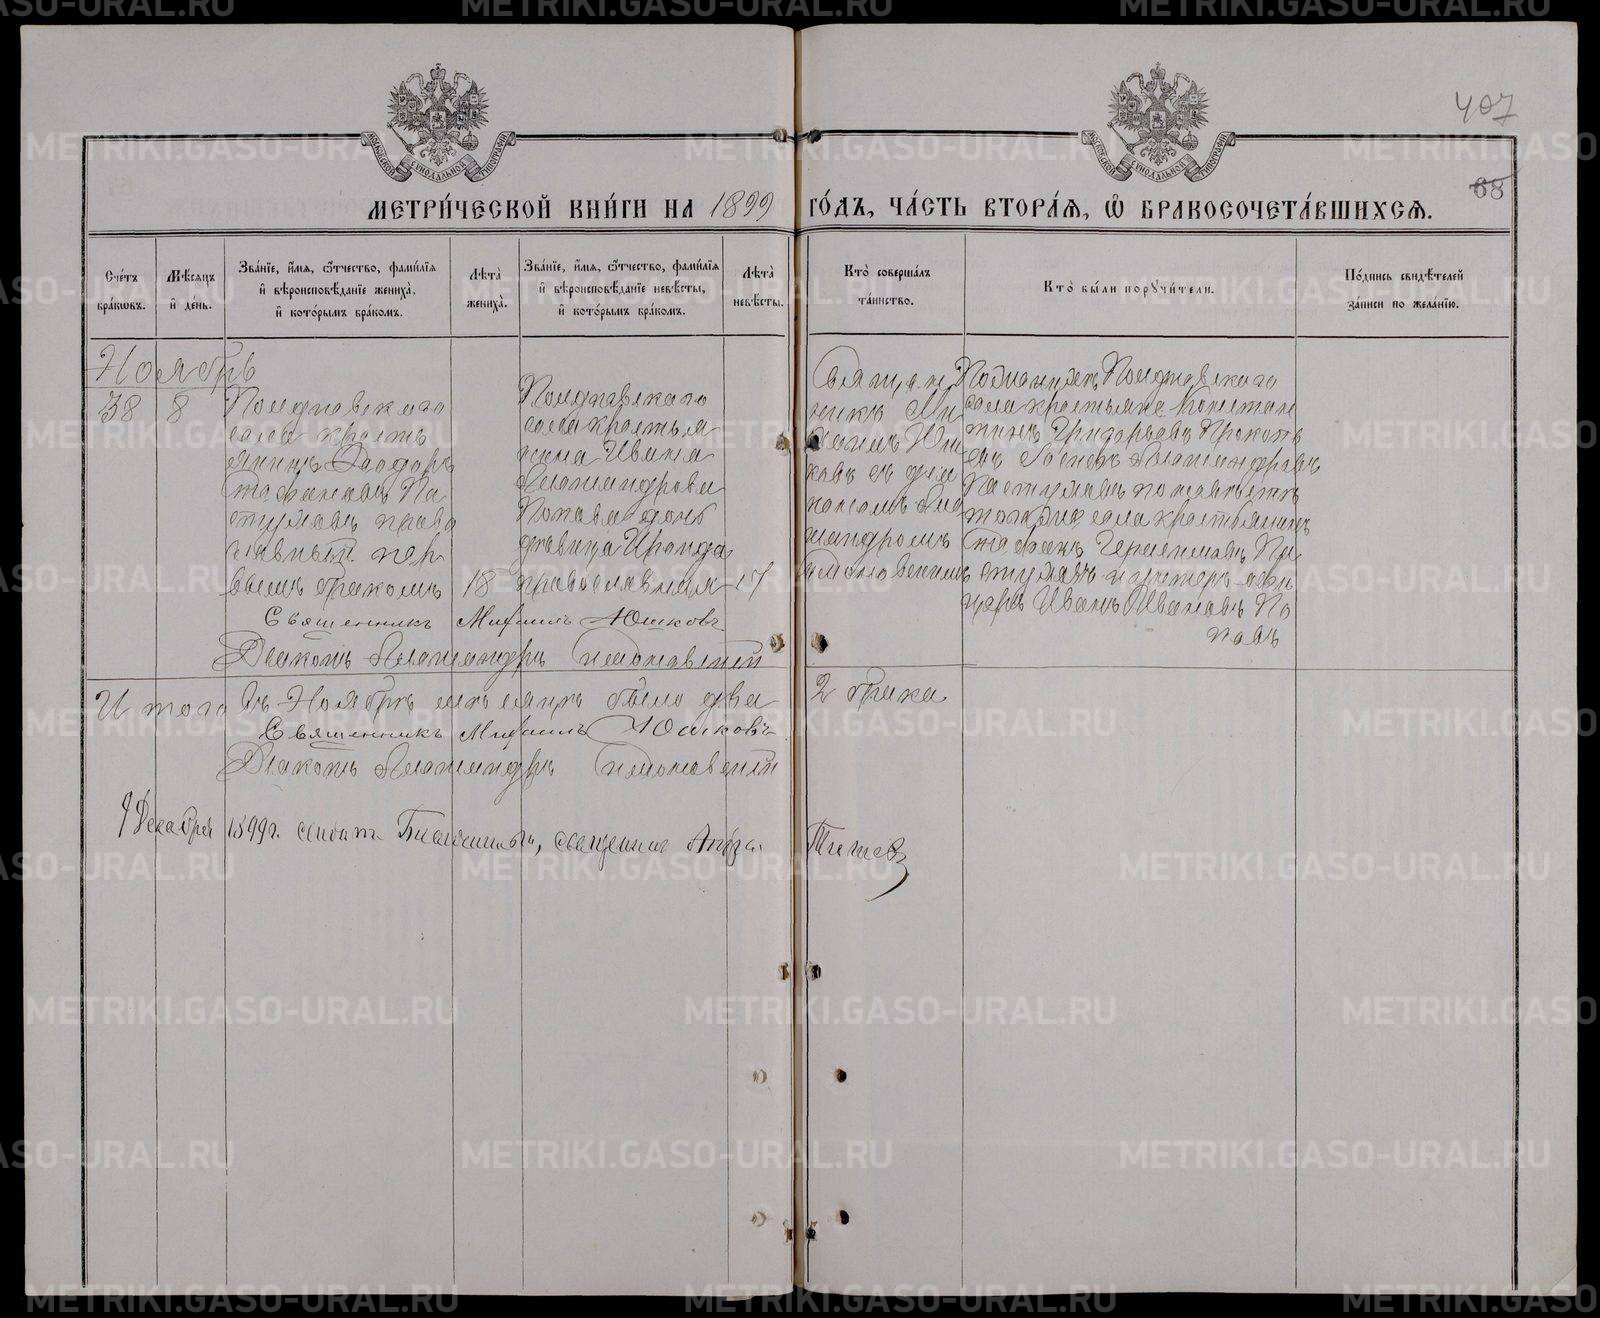 407
68
МЕТРИ́ЧЕСКОЙ КНИ́ГИ НА 1899 ГО́ДЪ, ЧА́СТЬ ВТОРА́Я, Ѡ҆ БРАКОСОЧЕТА́ВШИХСЯ.
Сче́тъ бра́ковъ.
Мѣ́сяцъ и҆ де́нь.
Зва́нїе, и҆́мя, ѻ҆́тчество, фами́лїя и҆ вѣроисповѣ́данїе жениха̀, и҆ кото́рымъ бра́комъ.
Лѣта̀ жениха̀.
Зва́нїе, и҆́мя, ѻ҆́тчество, фами́лїя и҆ вѣроисповѣ́данїе невѣ́сты, и҆ кото́рымъ бра́комъ.
Лѣта̀ невѣ́сты.
Кто̀ соверша́лъ та́инство.
Кто̀ бы́ли порꙋчи́тели.
По́дпись свидѣ́телей за́писи по жела́нїю.
Ноябрь
38
8
села кресть
янинъ Ѳеодоръ
Стефановъ Па
стуховъ право
славный пер
вымъ бракомъ
18
села крестья
нина Ивана
Александрова
Попова дочь
девица
православная
17
Священ
никъ Ми
хаилъ Юш
ковъ съ діа
кономъ Але
ксандромъ
села крестьяне Констан
тинъ Григорьевъ
Александровъ
Пастуховъ по невѣстѣ
того же села крестьянинъ
Стефанъ Герасимовъ Па
стуховъ и унтеръ-офи
церъ Иванъ Ивановъ По
повъ
Священникъ Михаилъ Юшковъ
Діаконъ Александръ
Итого въ Ноябрѣ мѣсяцѣ было два
2 брака
Священникъ Михаилъ Юшковъ
Діаконъ Александръ
9 Декабря 1899 г.